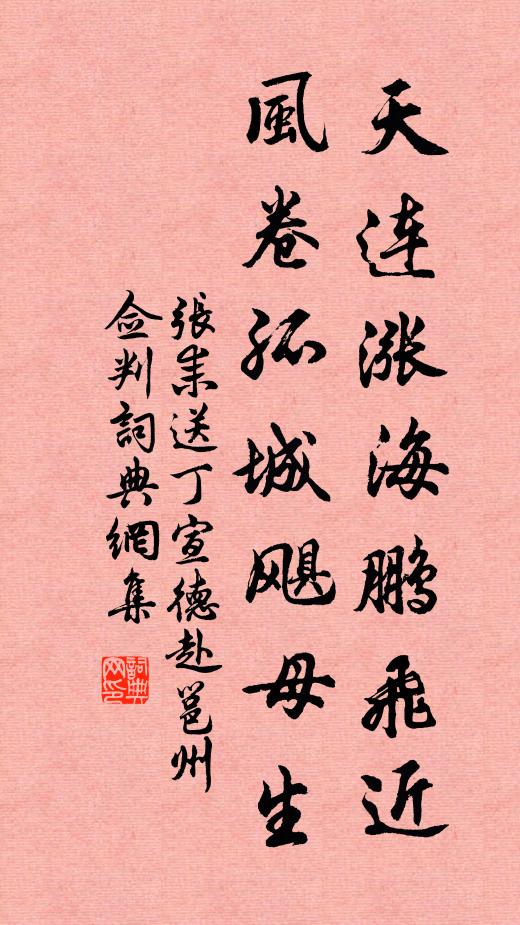 天连涨海鹏飛近
風卷孤城颶母生
張耒送丁宣德赴邕州
僉判詞典網集
詞典网印